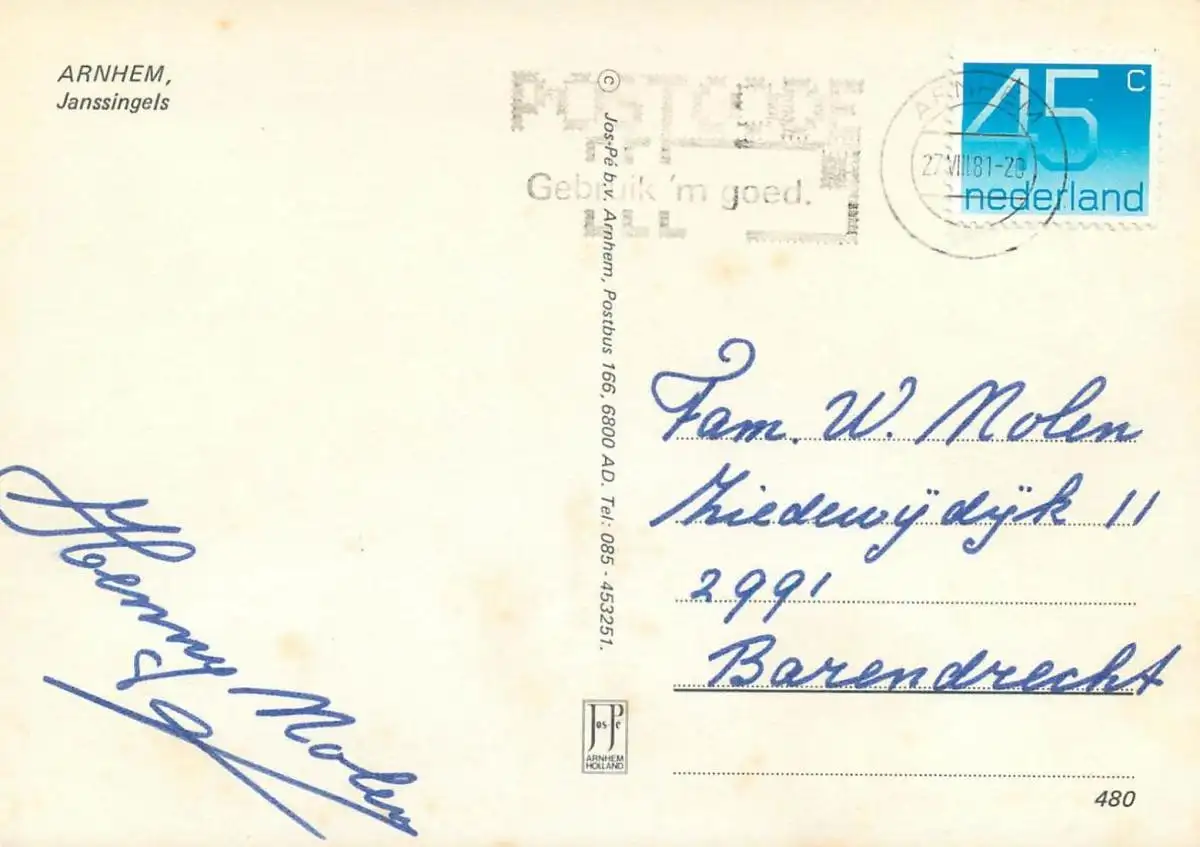 ARNHEM,
Janssingels
© Jos-Pé b.v. Arnhem, Postbus 166, 6800 AD. Tel: 085 - 453251.
POSTCODE
Gebruik 'm goed.
ARNHEM
27 VIII 81-20
45 c
nederland
Fam. W. Molen
Ziedewijdijk 11
2991
Barendrecht
Henny Molen
Jos-Pé
ARNHEM
HOLLAND
480